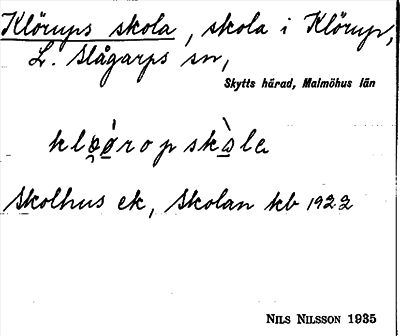 Klörups skola, skola i Klörup,
L. Slågarps sn,
Skytts härad, Malmöhus län
kleǿropskàla
Skolhus ek, Skolan kb 1922
NILS NILSSON 1935